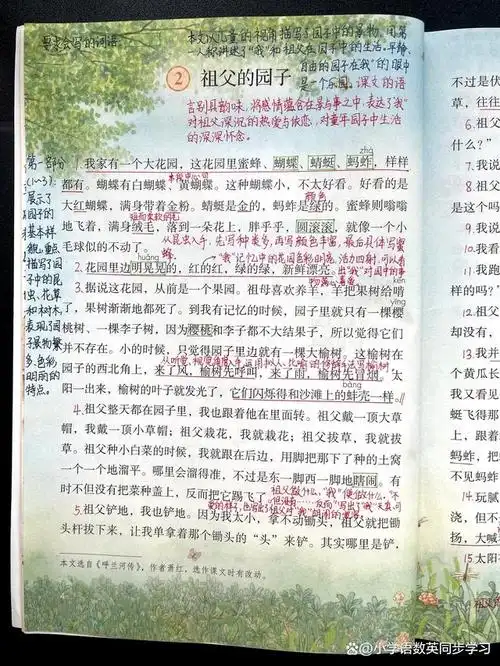 要求会写的词语
本文以儿童的视角描写了园子中的景物，用第
一人称讲述了“我”和祖父在园子中的生活。平静、
自由的园子在“我”的眼中
是一个乐园。课文的语
2 祖父的园子
言别具韵味，将感情蕴含在景与事之中，表达了“我”
对祖父深沉的热爱与依恋，对童年园子中生活
的深深怀念。
第一部分
(1~3)：
展示了
园子中
的基本样
貌，重点
描写了园
子中的昆
虫、花草
和树木，
表现了园
子景物繁
多、色彩
明丽的
特点。
zhà
1.我家有一个大花园，这花园里蜜蜂、蝴蝶、蜻蜓、蚂蚱，样样
都有。蝴蝶有白蝴蝶、黄蝴蝶。这种蝴蝶小，不太好看。好看的是
颜色
大红蝴蝶，满身带着金粉。蜻蜓是金的，蚂蚱是绿的。蜜蜂则嗡嗡
地飞着，满身绒毛，落到一朵花上，胖乎乎，圆滚滚，就像一个小
毛球似的不动了。
从昆虫入手，先写种类多，再写颜色丰富，最后具体写蜜
蜂
“我”记忆中的花园色彩明亮、活力四射，可以看
huǎng
2.花园里边明晃晃的，红的红，绿的绿，新鲜漂亮。
出“我”对园中的事
物
kěn
3.据说这花园，从前是一个果园。祖母喜欢养羊，羊把果树给啃
yīng
了，果树渐渐地都死了。到我有记忆的时候，园子里就只有一棵樱
桃树、一棵李子树，因为樱桃和李子都不大结果子，所以觉得它们
并不存在。小的时候，只觉得园子里边就有一棵大榆树。这榆树在
园子的西北角上，来了风，榆树先呼叫，来了雨，榆树先冒烟。太
bàng
阳一出来，榆树的叶子就发光了，它们闪烁得和沙滩上的蚌壳一样。
4.祖父整天都在园子里，我也跟着他在里面转。祖父戴一顶大草
帽，我戴一顶小草帽；祖父栽花，我就栽花；祖父拔草，我就拔
草。祖父种小白菜的时候，我就跟在后边，用脚把那下了种的土窝
一个一个地溜平。哪里会溜得准，不过是东一脚西一脚地瞎闹。有
时不但没有把菜种盖上，反而把它踢飞了。
祖父做什么，“我”便做什么，“不
5.祖父铲地，我也铲地。因为我太小，拿不动锄头，祖父就把锄
头杆拔下来，让我单拿着那个锄头的“头”来铲。其实哪里是铲，
本文选自《呼兰河传》，作者萧红，选作课文时有改动。
4
不过是
草，往往
6.祖
什么？”
7.
8.祖
是这个吗
9.我
10.我
11.我跑
样的吗？
12.我
却没有，
13.我
个黄瓜长
我又看见
蜓飞得那
上，跟着
蚂蚱，把
不见蚂蚱
14.玩腻
浇，但不
扬，大喊
15.太阳
小学语数英同步学习